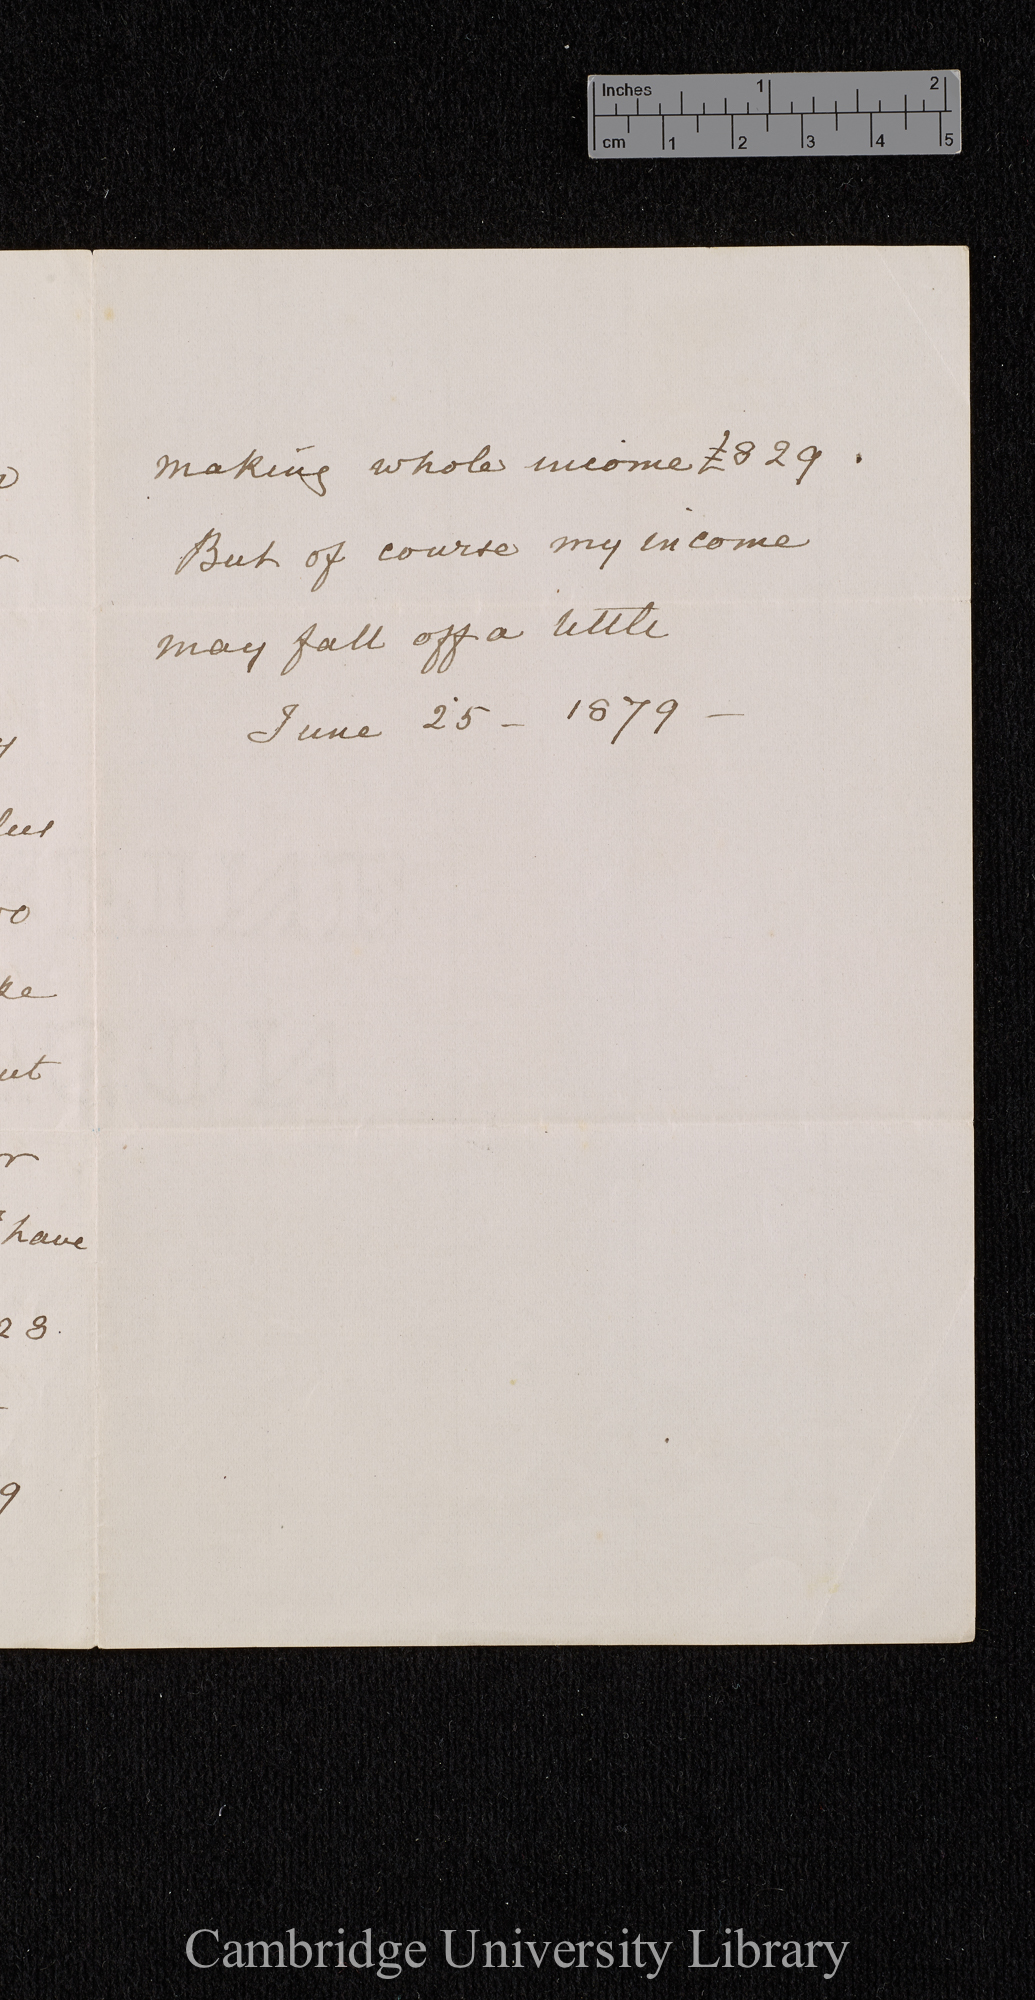 Inches 1 2
cm 1 2 3 4 5
making whole income £829.
But of course my income
may fall off a little
June 25 - 1879 -
ke
have
Cambridge University Library